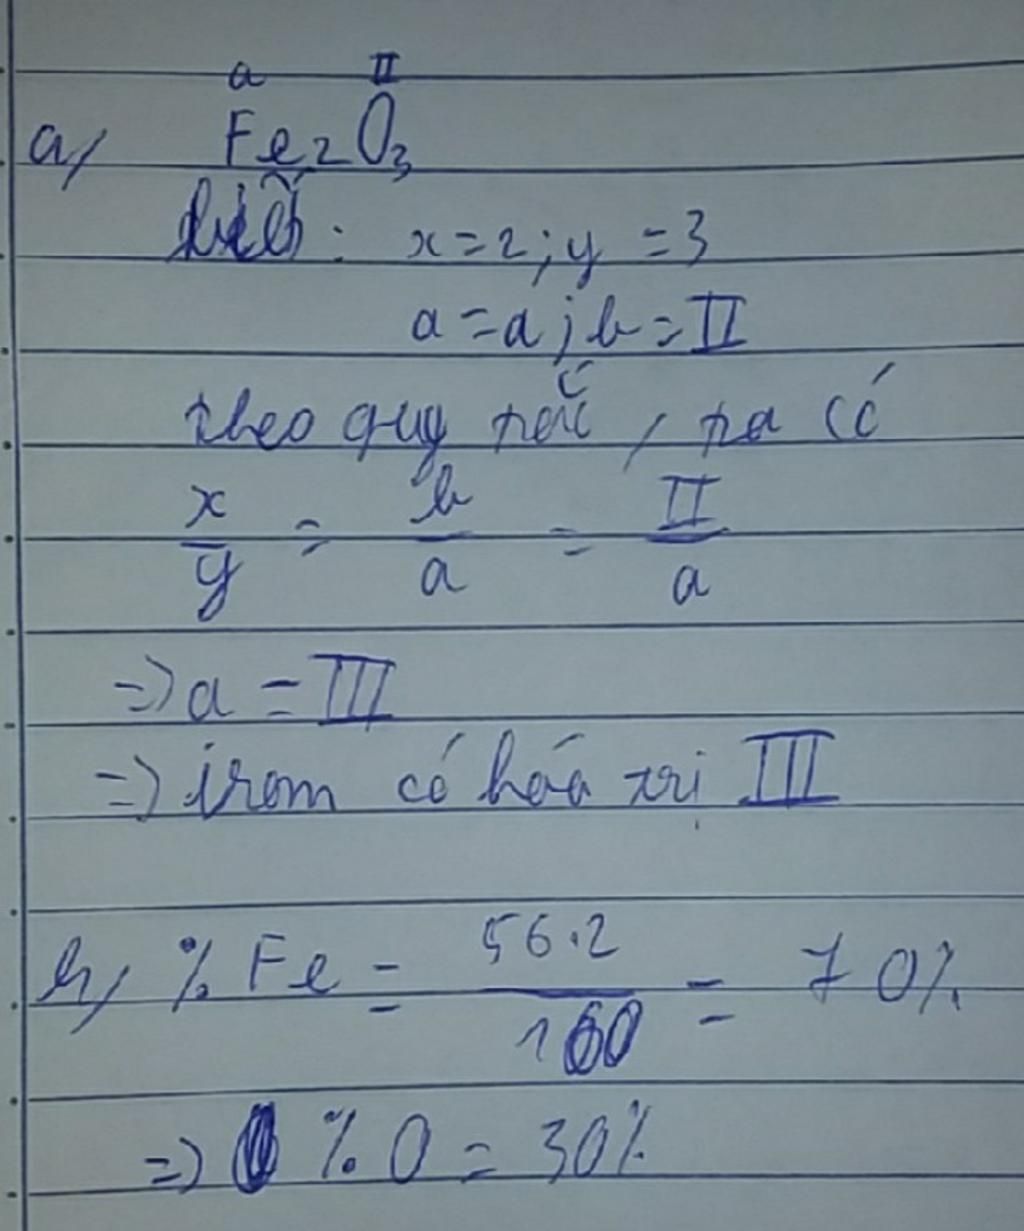 a II
a, Fe2O3
biết: x=2; y=3
a=a; b=II
theo quy tắc, ta có
x/y = b/a = II/a
=> a = III
=> irom có hóa trị III
b, % Fe = 56.2/160 = 70%
=> % O = 30%